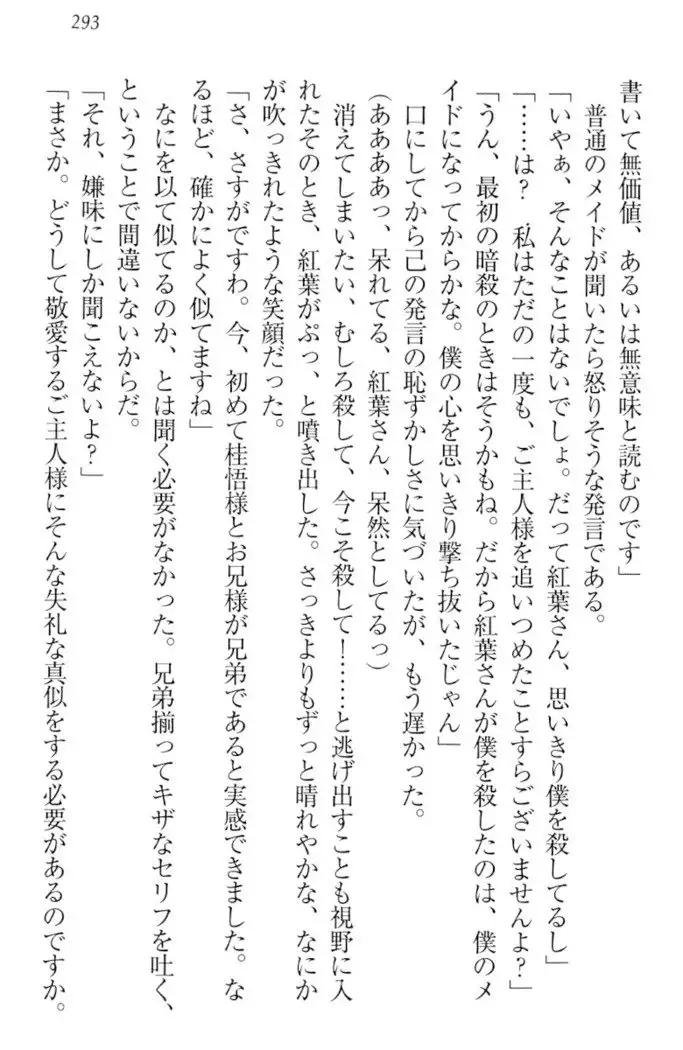 293
書いて無価値、あるいは無意味と読むのです」
普通のメイドが聞いたら怒りそうな発言である。
「いやぁ、そんなことはないでしょ。だって紅葉さん、思いきり僕を殺してるし」
「……は？　私はただの一度も、ご主人様を追いつめたことすらございませんよ？」
「うん、最初の暗殺のときはそうかもね。だから紅葉さんが僕を殺したのは、僕のメ
イドになってからかな。僕の心を思いきり撃ち抜いたじゃん」
口にしてから己の発言の恥ずかしさに気づいたが、もう遅かった。
（ああああっ、呆れてる、紅葉さん、呆然としてるっ）
消えてしまいたい、むしろ殺して、今こそ殺して！……と逃げ出すことも視野に入
れたそのとき、紅葉がぷっ、と噴き出した。さっきよりもずっと晴れやかな、なにか
が吹っきれたような笑顔だった。
「さ、さすがですわ。今、初めて桂悟様とお兄様が兄弟であると実感できました。な
るほど、確かによく似てますね」
なにを以て似てるのか、とは聞く必要がなかった。兄弟揃ってキザなセリフを吐く、
ということで間違いないからだ。
「それ、嫌味にしか聞こえないよ？」
「まさか。どうして敬愛するご主人様にそんな失礼な真似をする必要があるのですか。